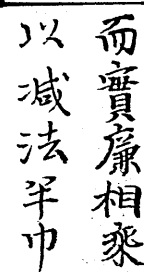 而實廉相乘
以減法半巾